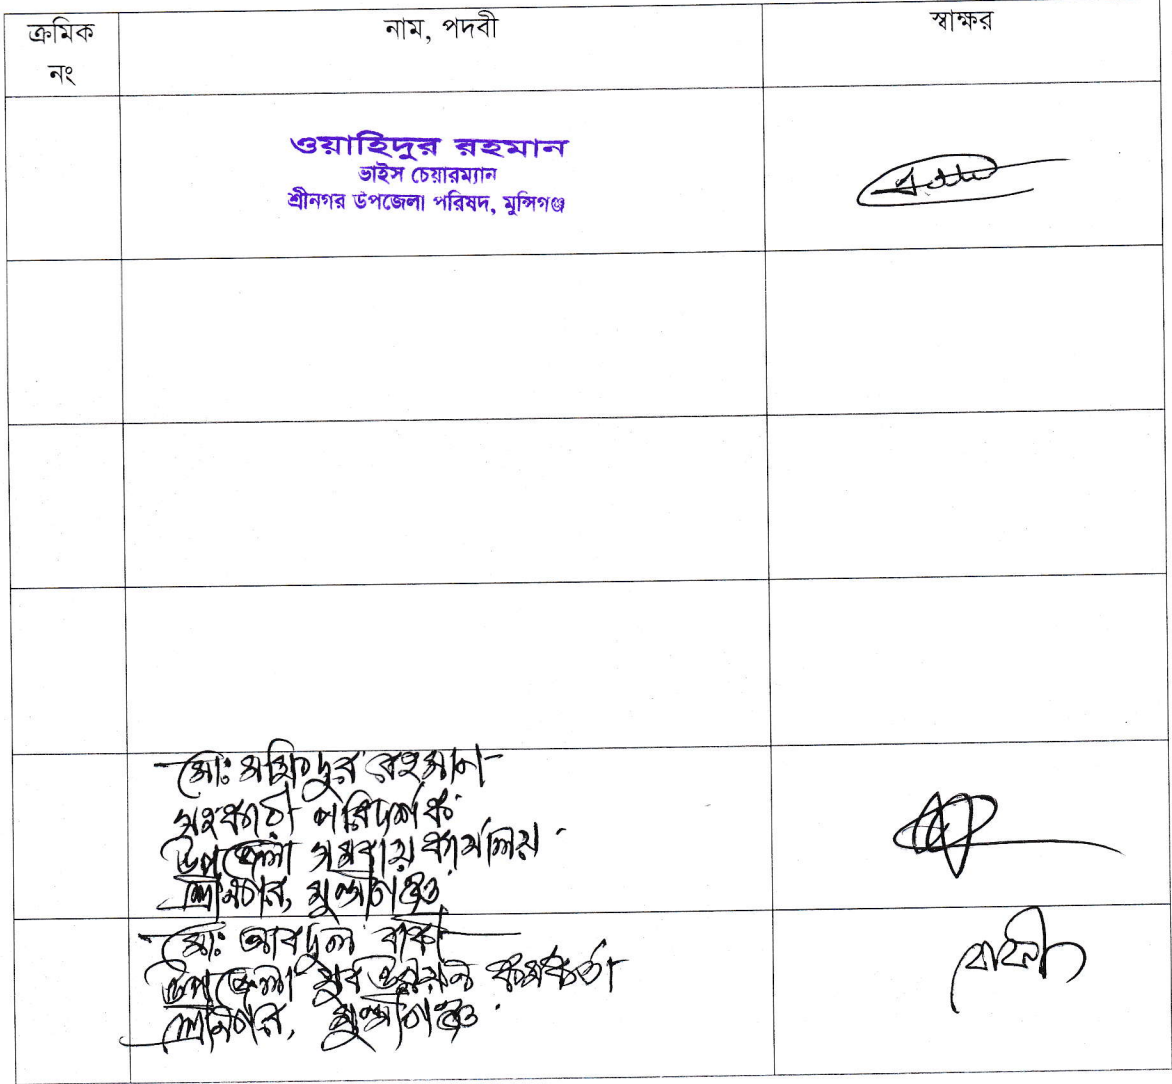 ক্রমিক
নং
নাম, পদবী
স্বাক্ষর
ওয়াহিদুর রহমান
ভাইস চেয়ারম্যান
শ্রীনগর উপজেলা পরিষদ, মুন্সিগঞ্জ
মোঃ রহমান
সহকারী পরিদর্শক
উপজেলা সমবায় কার্যালয়
শ্রীনগর, মুন্সীগঞ্জ
মোঃ আবদুল বাকী
উপজেলা যুব উন্নয়ন কর্মকর্তা
শ্রীনগর, মুন্সীগঞ্জ
বাকী